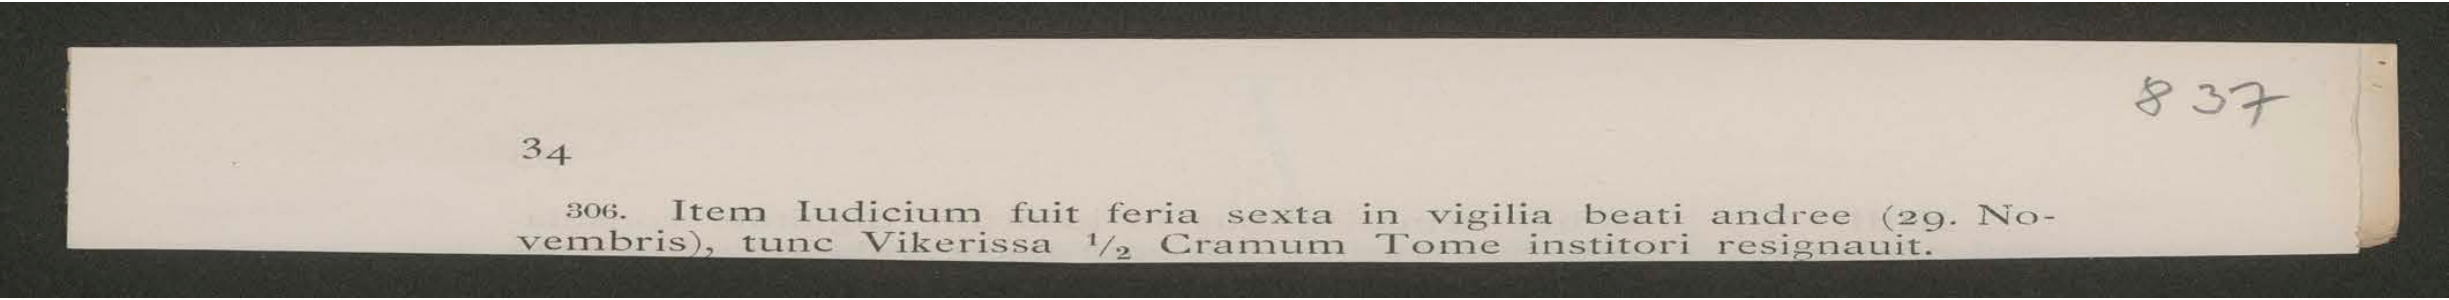 837
34
306. Item Iudicium fuit feria sexta in vigilia beati andree (29. No-
vembris), tunc Vikerissa 1/2 Cramum Tome institori resignauit.